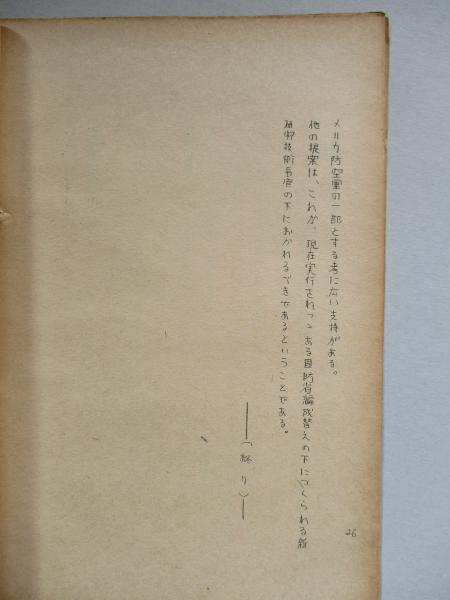 メリカ防空軍の一部とする考に広い支持がある。
他の提案は、これが、現在実行されつゝある国防省編成替えの下につくられる新
研究技術長官の下におかれるべきであるということである。
――(終り)――
26